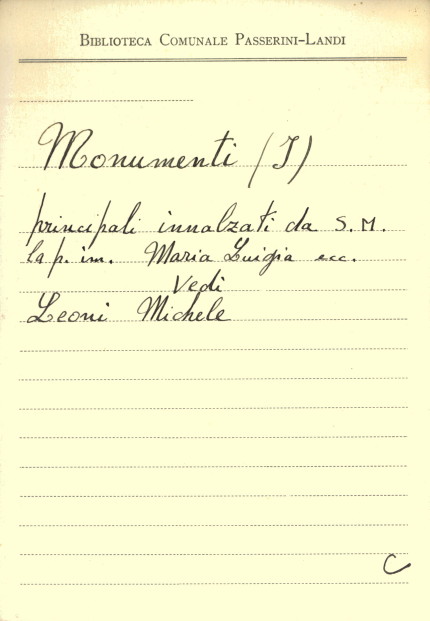 BIBLIOTECA COMUNALE PASSERINI-LANDI
Monumenti (I)
principali innalzati da S. M.
la p. im. Maria Luigia ecc.
Vedi
Leoni Michele
C